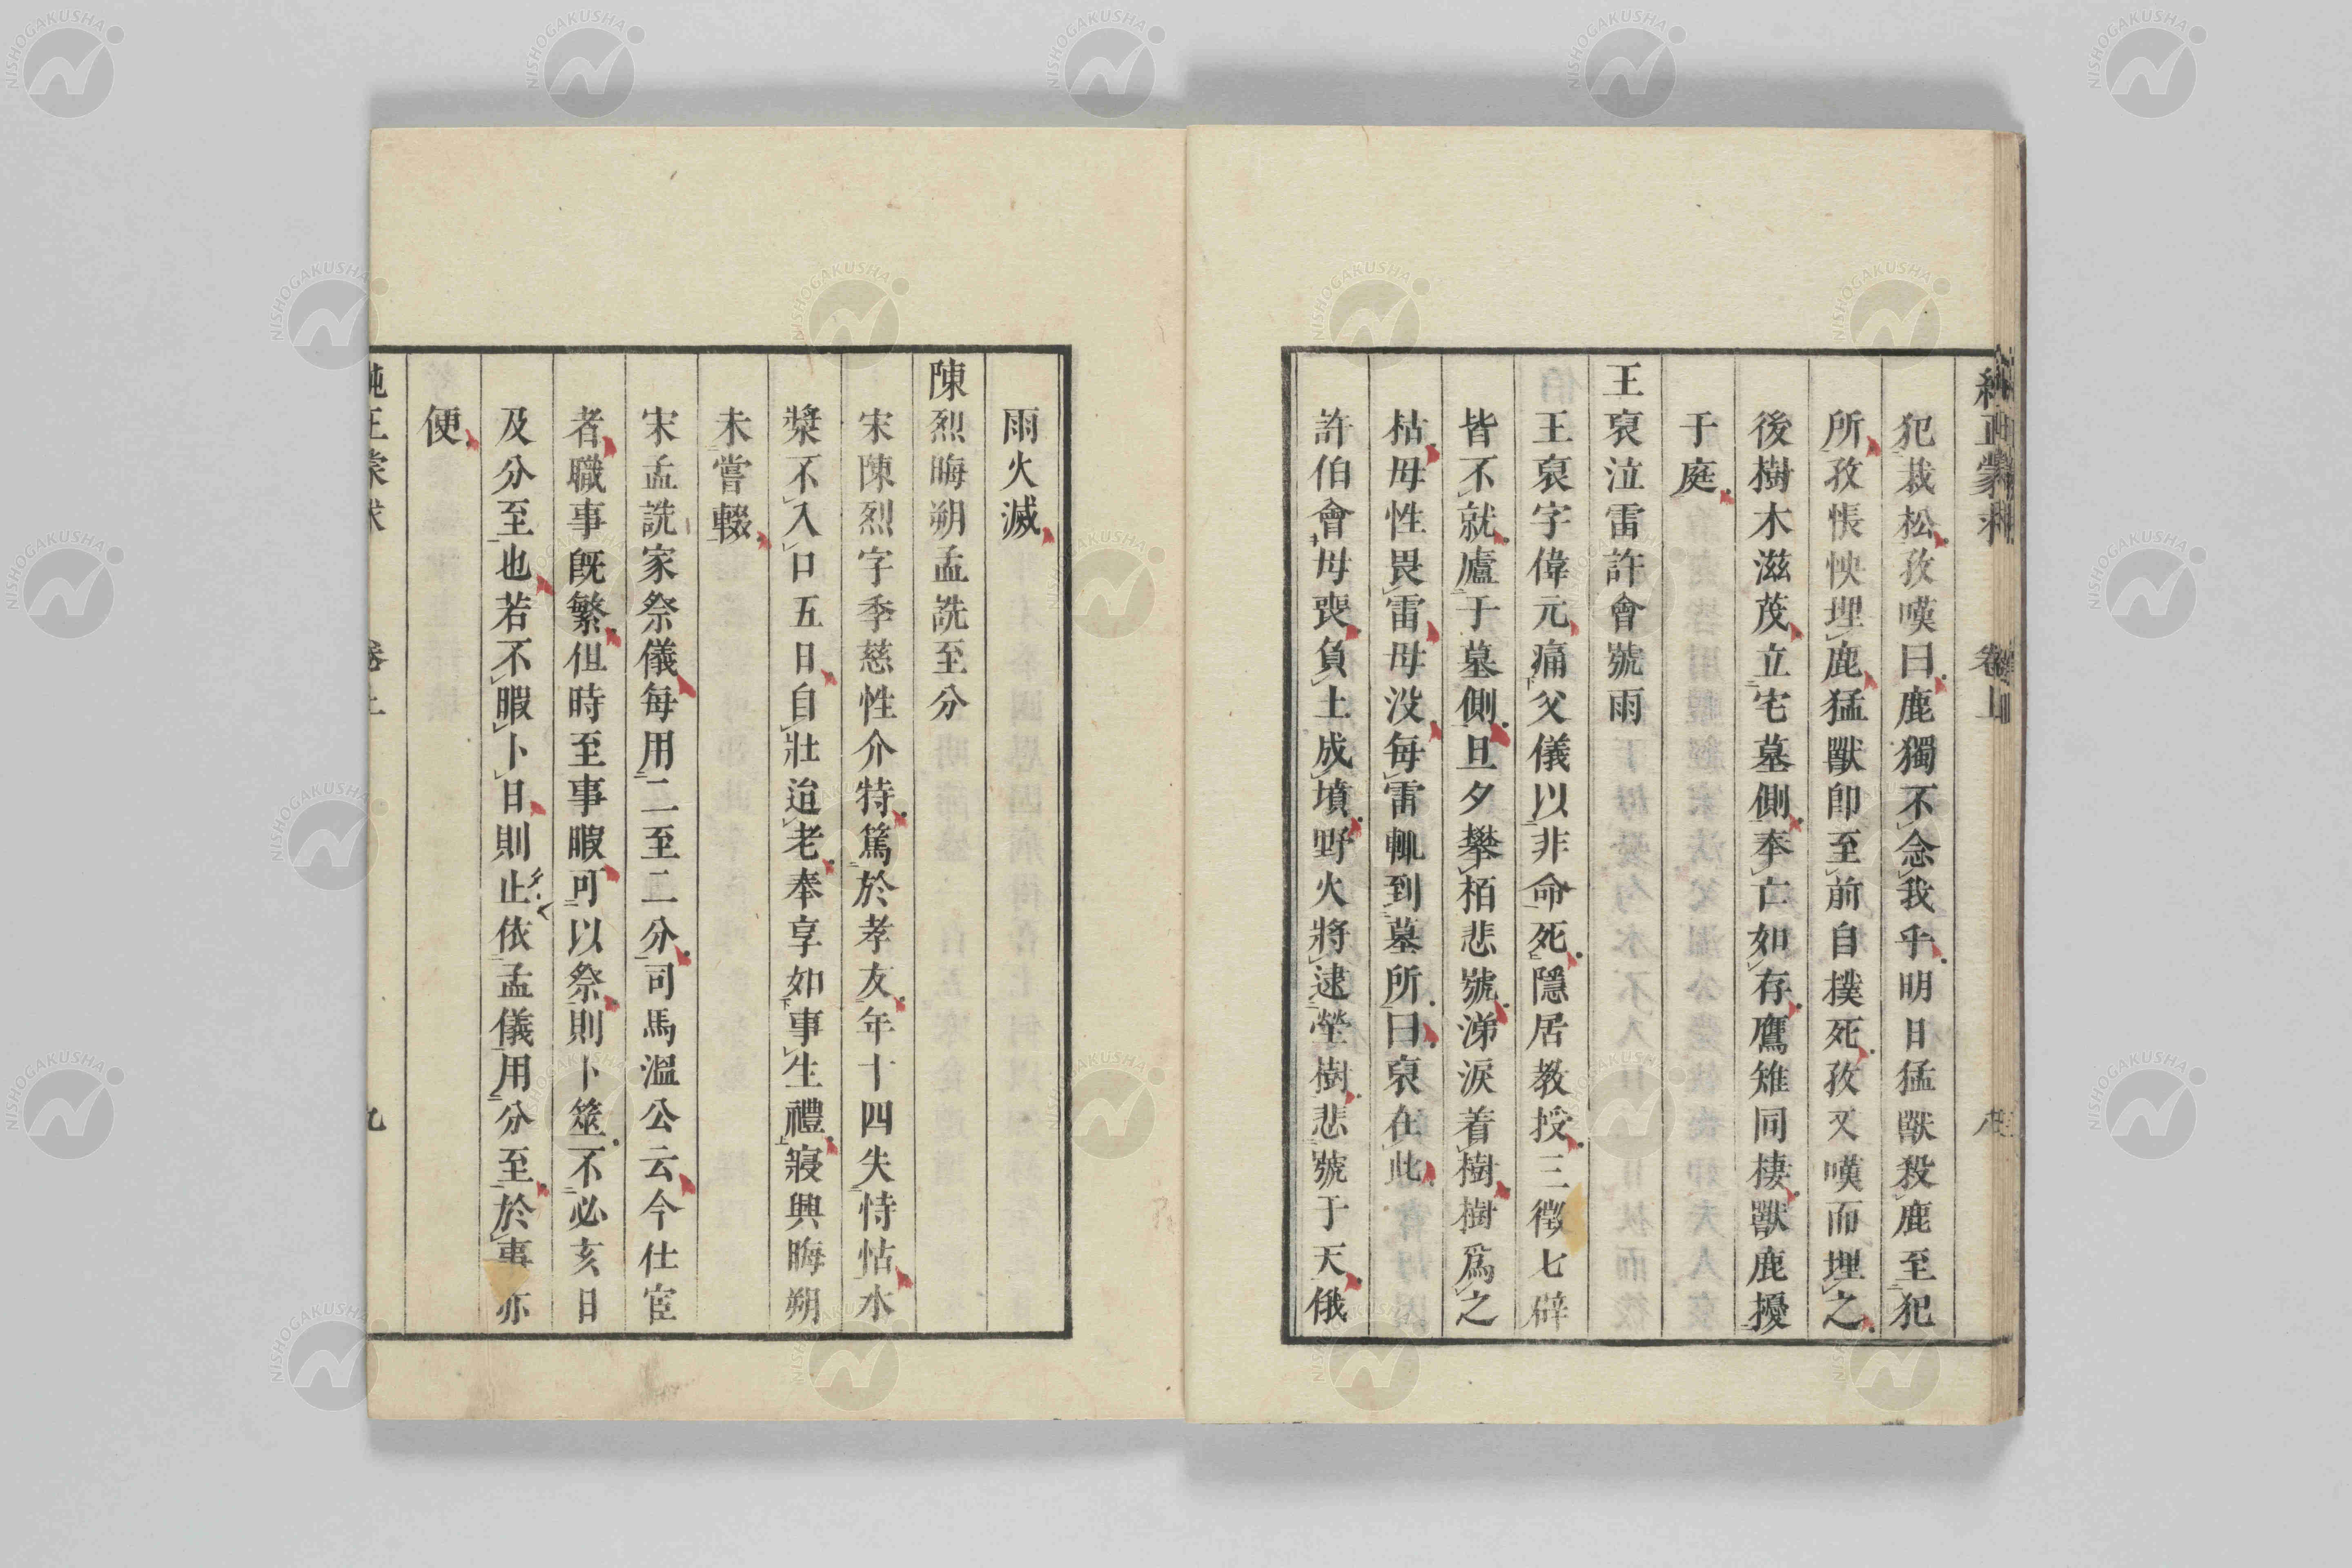 純正蒙求 卷上 八
犯栽松孜嘆曰鹿獨不念我乎明日猛獸殺鹿至犯
所孜悵怏埋鹿猛獸卽至前自撲死孜又嘆而埋之
後樹木滋茂立宅墓側奉亡如存鷹雉同棲獸鹿擾
于庭
王裒泣雷許會號雨
王裒字偉元痛父儀以非命死隱居教授三徵七辟
皆不就廬于墓側旦夕攀栢悲號涕淚着樹樹爲之
枯母性畏雷母没每雷輒到墓所曰裒在此
許伯會母喪負土成墳野火將逮塋樹悲號于天俄
雨火滅
陳烈晦朔孟詵至分
宋陳烈字季慈性介特篤於孝友年十四失恃怙水
漿不入口五日自壯迨老奉享如事生禮寢興晦朔
未嘗輟
宋孟詵家祭儀每用二至二分司馬溫公云今仕宦
者職事旣繁但時至事暇可以祭則卜筮不必亥日
及分至也若不暇卜日則止依孟儀用分至於事亦
便
純正蒙求 卷上 九
NISHOGAKUSHA